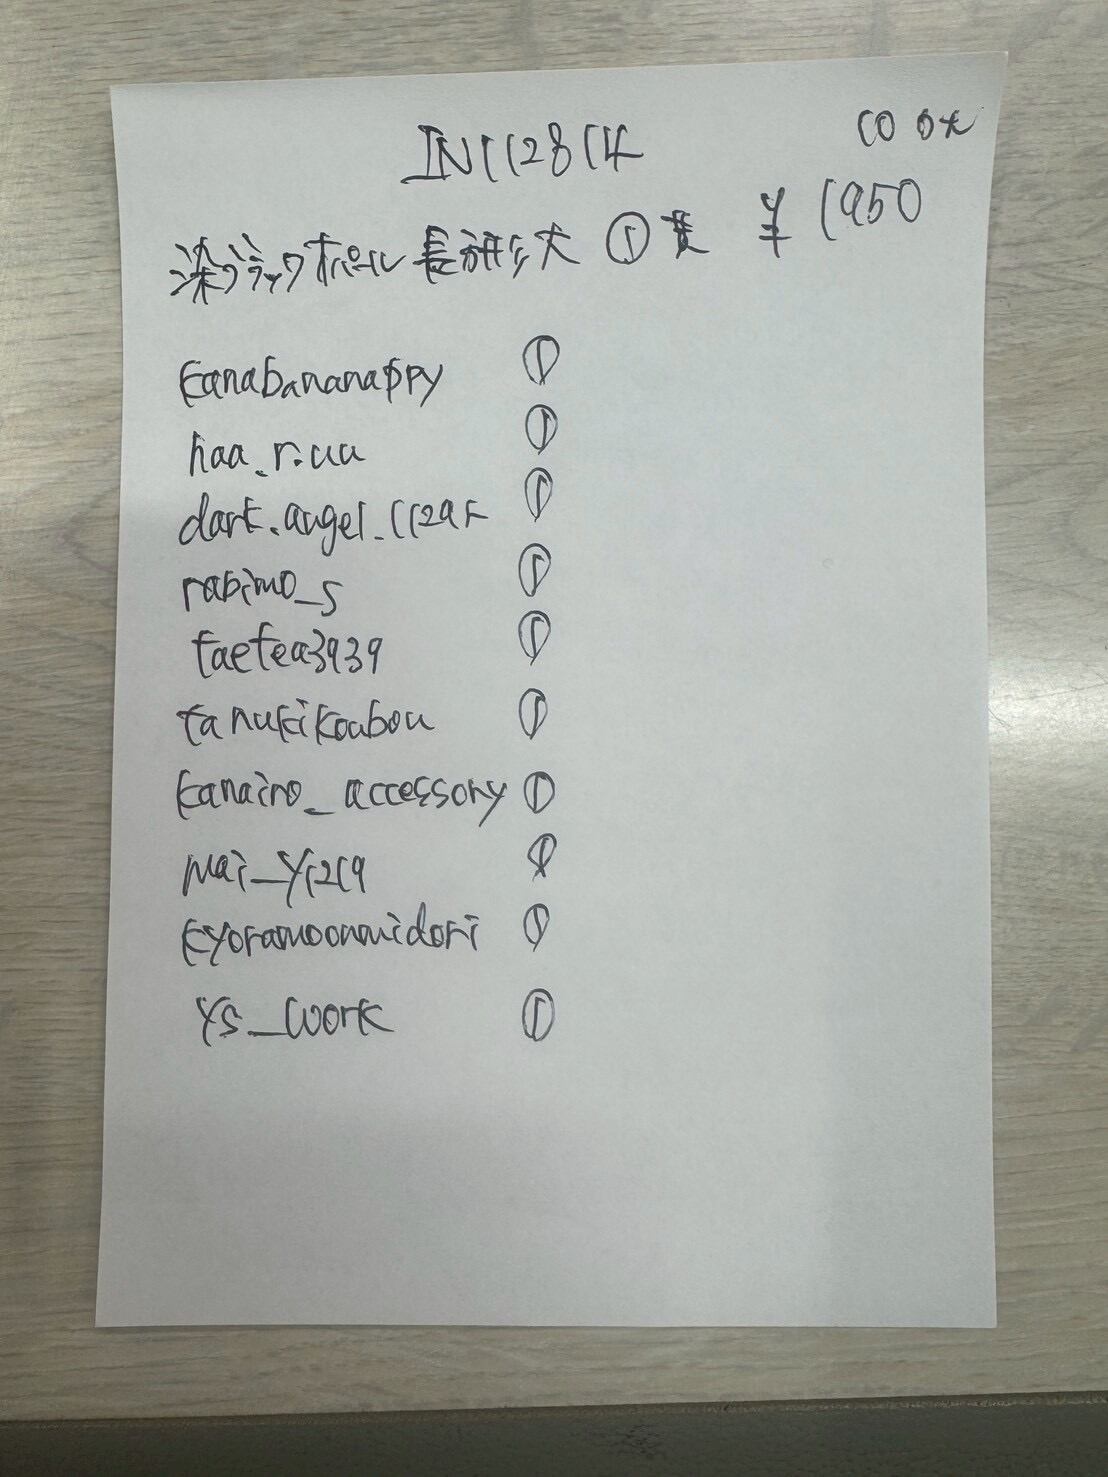 IN112814
染ブラックオパール 長研ぎ大 ① 黄 ¥1950
kanabananappy ①
haa_r.uu ①
rabimo_s ①
taetea3939 ①
tanukikoubou ①
kanairo_accessory ①
mai_y1219 ①
kyoramoonmidori ①
ys_work ①